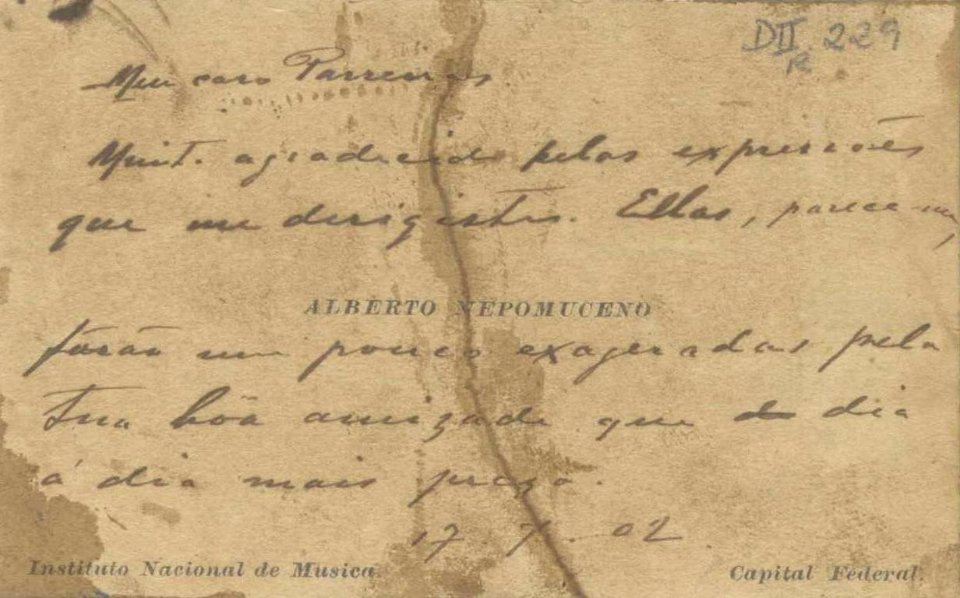 DII. 229
R
Meu caro Parreiras
Muit. agradecido pelas expressões
que me derigistes. Ellas, parece-me,
ALBERTO NEPOMUCENO
forão um pouco exageradas pela
tua bôa amizade que de dia
á dia mais prezo.
17 7. 02
Instituto Nacional de Musica.
Capital Federal.